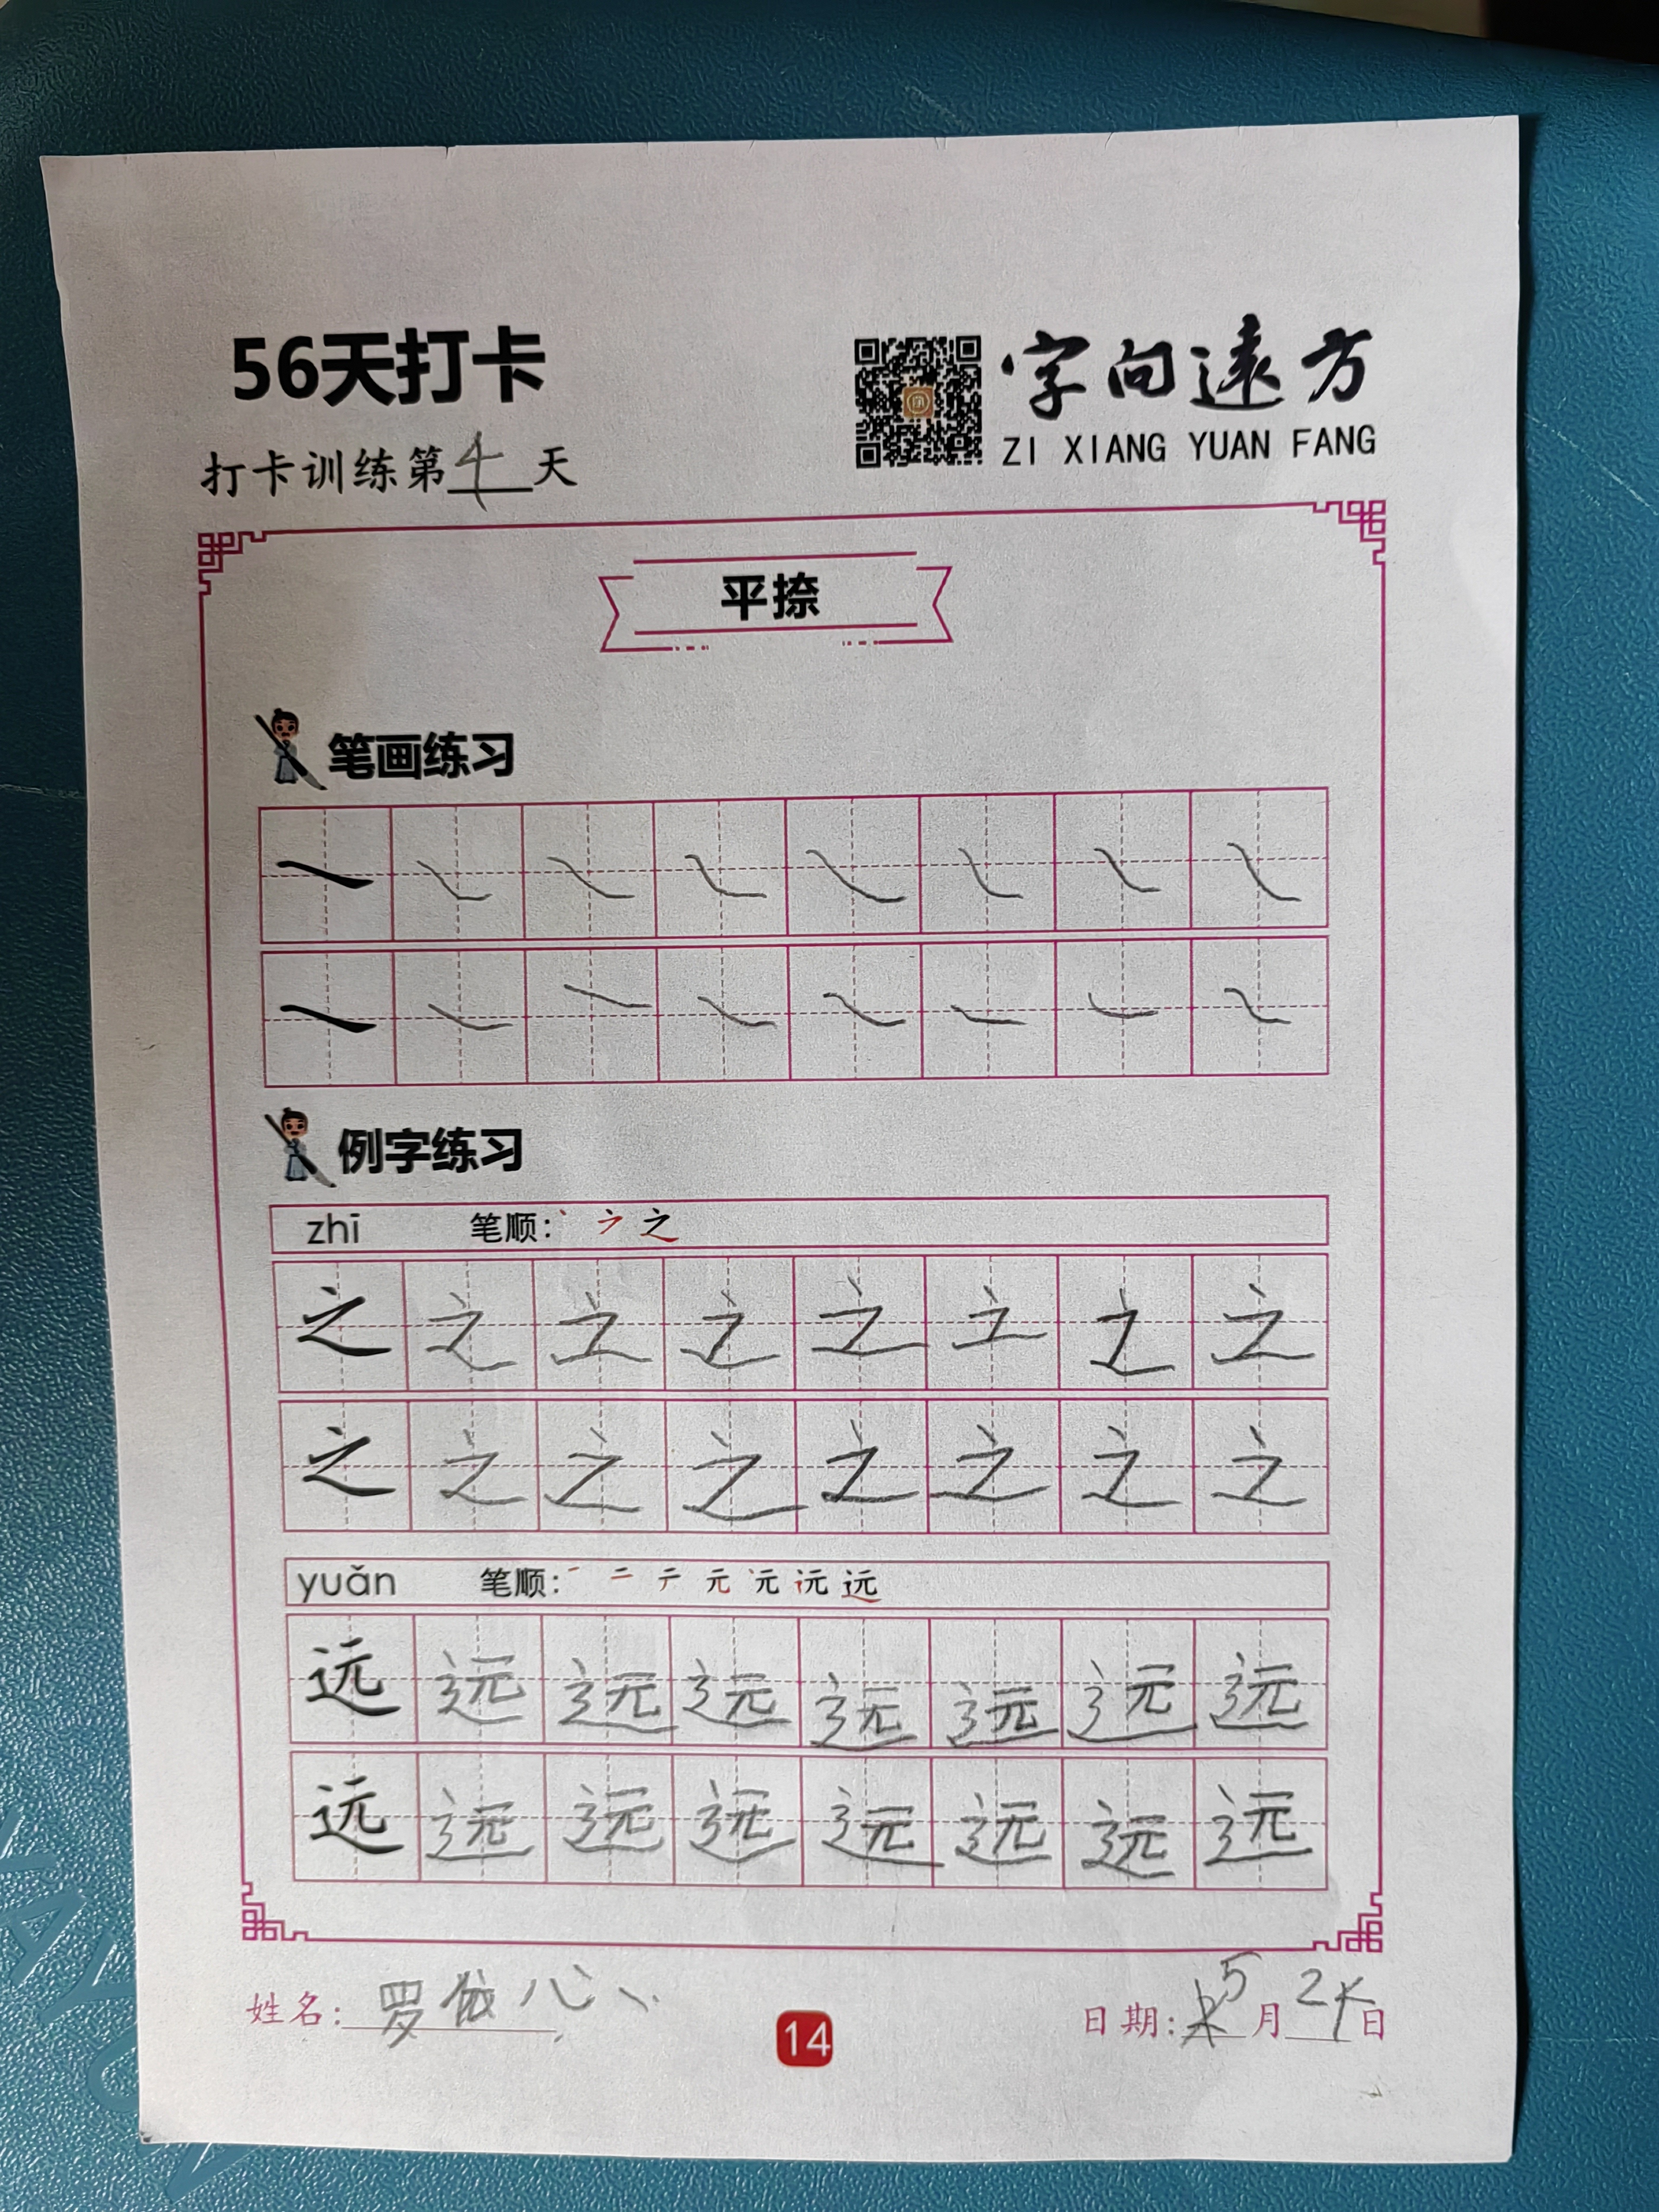 56天打卡
字向遠方
ZI XIANG YUAN FANG
打卡训练第4天
平捺
笔画练习
例字练习
zhī 笔顺:
之 之 之 之 之 之 之 之
之 之 之 之 之 之 之 之
yuǎn 笔顺: 一 二 テ 元 远
远 远 远 远 远 远 远 远
远 远 远 远 远 远 远 远
姓名: 罗
14
日期: 5月24日